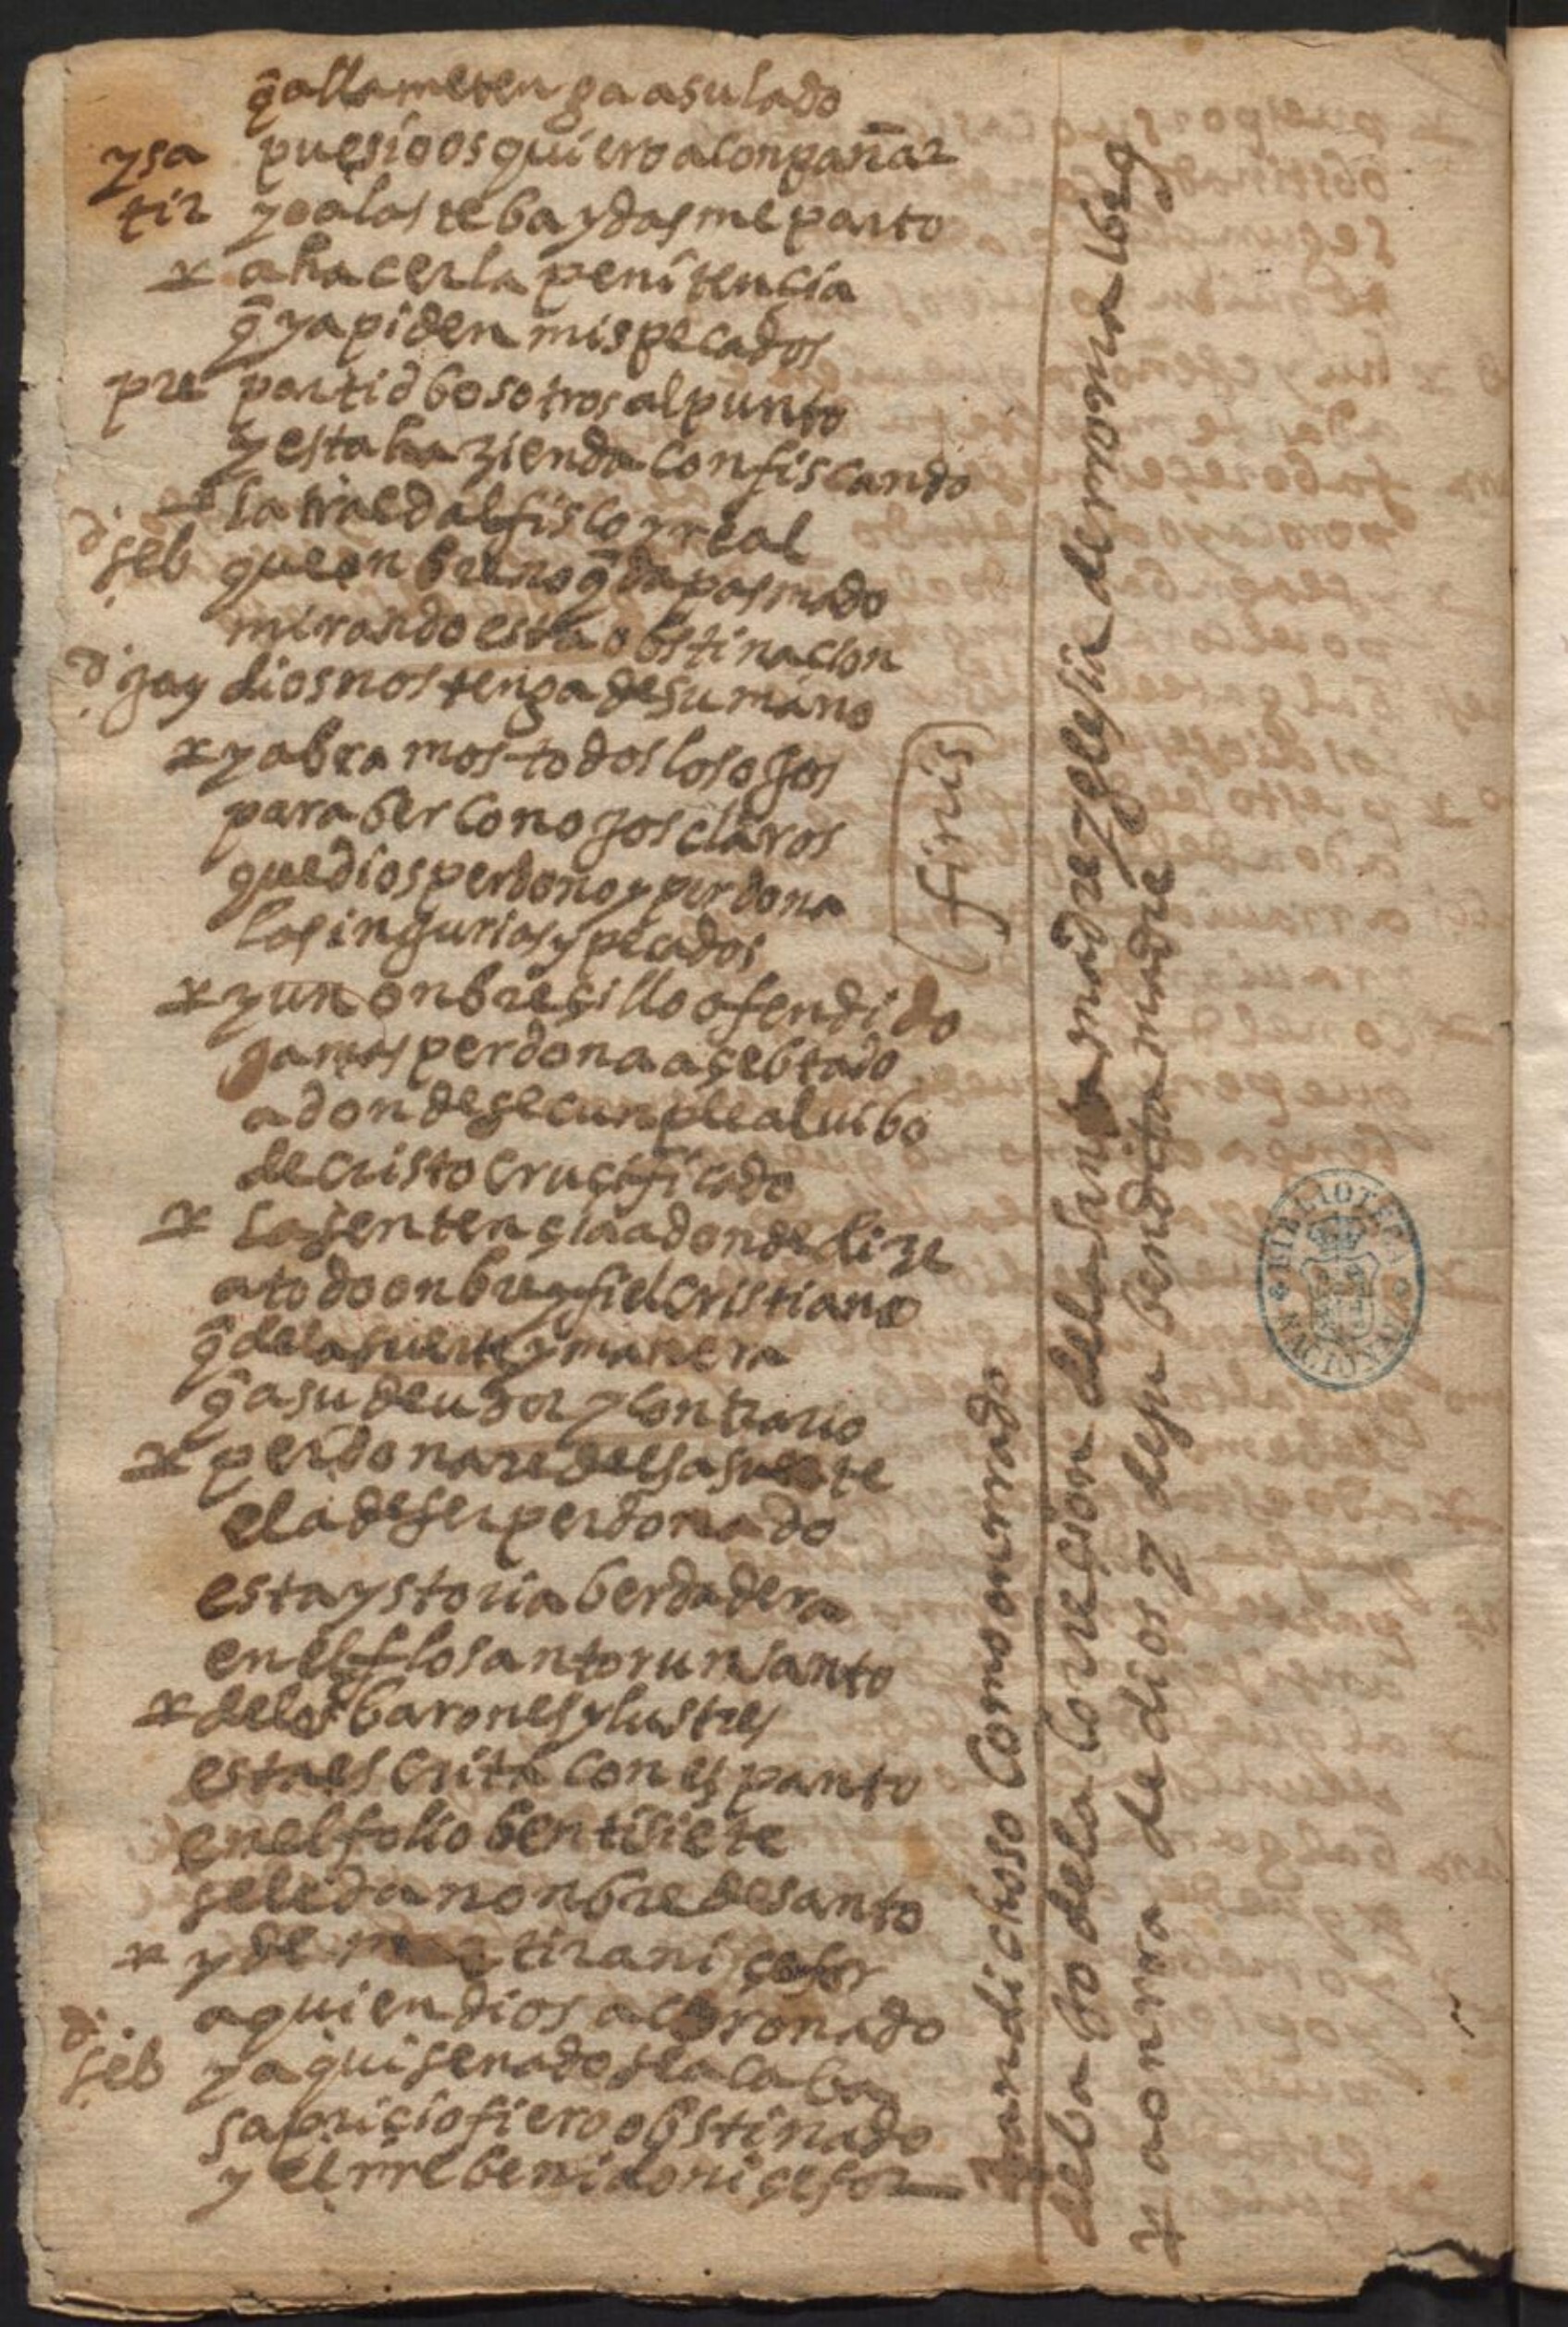 q̃ alla me tenga a su lado
ysa pues io os quiero aconpañar
tir yo a las tebaydas me parto
a hacer la penitençia
q̃ ya piden mis pecados
pre partid bosotros al punto
y esta hazienda confiscando
la traed al fisco rreal
d. seb que on bueno q̃da pasmado
mirando esta obstinaçion
d. gay dios nos tenga de su mano
y abramos todos los ojos
para ber con ojos claros
que dios perdono y perdona
las injurias y pecados
y un onbreçillo ofendido
jamas perdona açebtado
a donde se cunple al uibo
de cristo cruçificado
la sentençia a donde dize
a todo onbre y fiel cristiano
q̃ de la suerte y manera
q̃ a su deudor y contrario
perdonare de esa suerte
el a de ser perdonado
esta ystoria berdadera
en el flosantorun santo
de los barones ylustres
esta escrita con espanto
en el folio bentisiete
se le da nonbre de santo
y de martir a niçefor
a quien dios a coronado
d. seb y aqui senado se acaba
sapriçio fiero obstinado
y el rre benido niçefor
tan dichoso como onrrado
(finis)
debaxo de la correçion de la santa madre yglesia de rroma
a onrra de dios y de su bendita madre
BIBLIOTECA NACIONAL